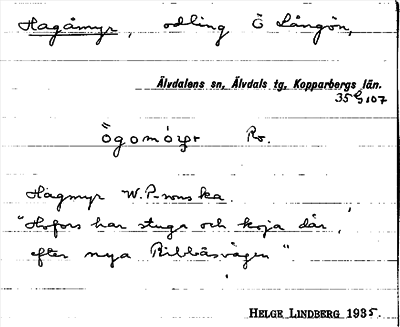 Hagåmyr, odling Ö Långön,
Älvdalens sn, Älvdals tg, Kopparbergs län.
35 G 107
Ögomóyr Ro.
Hagmyr W.P-sons ka.
"Hofors har stuga och koja där,
efter nya Ribbåsvägen"
HELGE LINDBERG 1935.